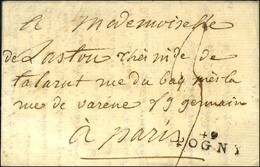 A Mademoiselle
de Lastou chés mde de
talarut rue du baq près la
rue de varene f9 germain
à paris
49
LOGNY